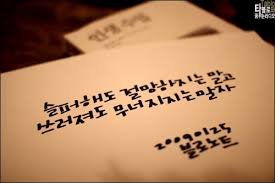 슬퍼해도 절망하지는 말고
쓰러져도 무너지지는 말자
20090125
블로노트